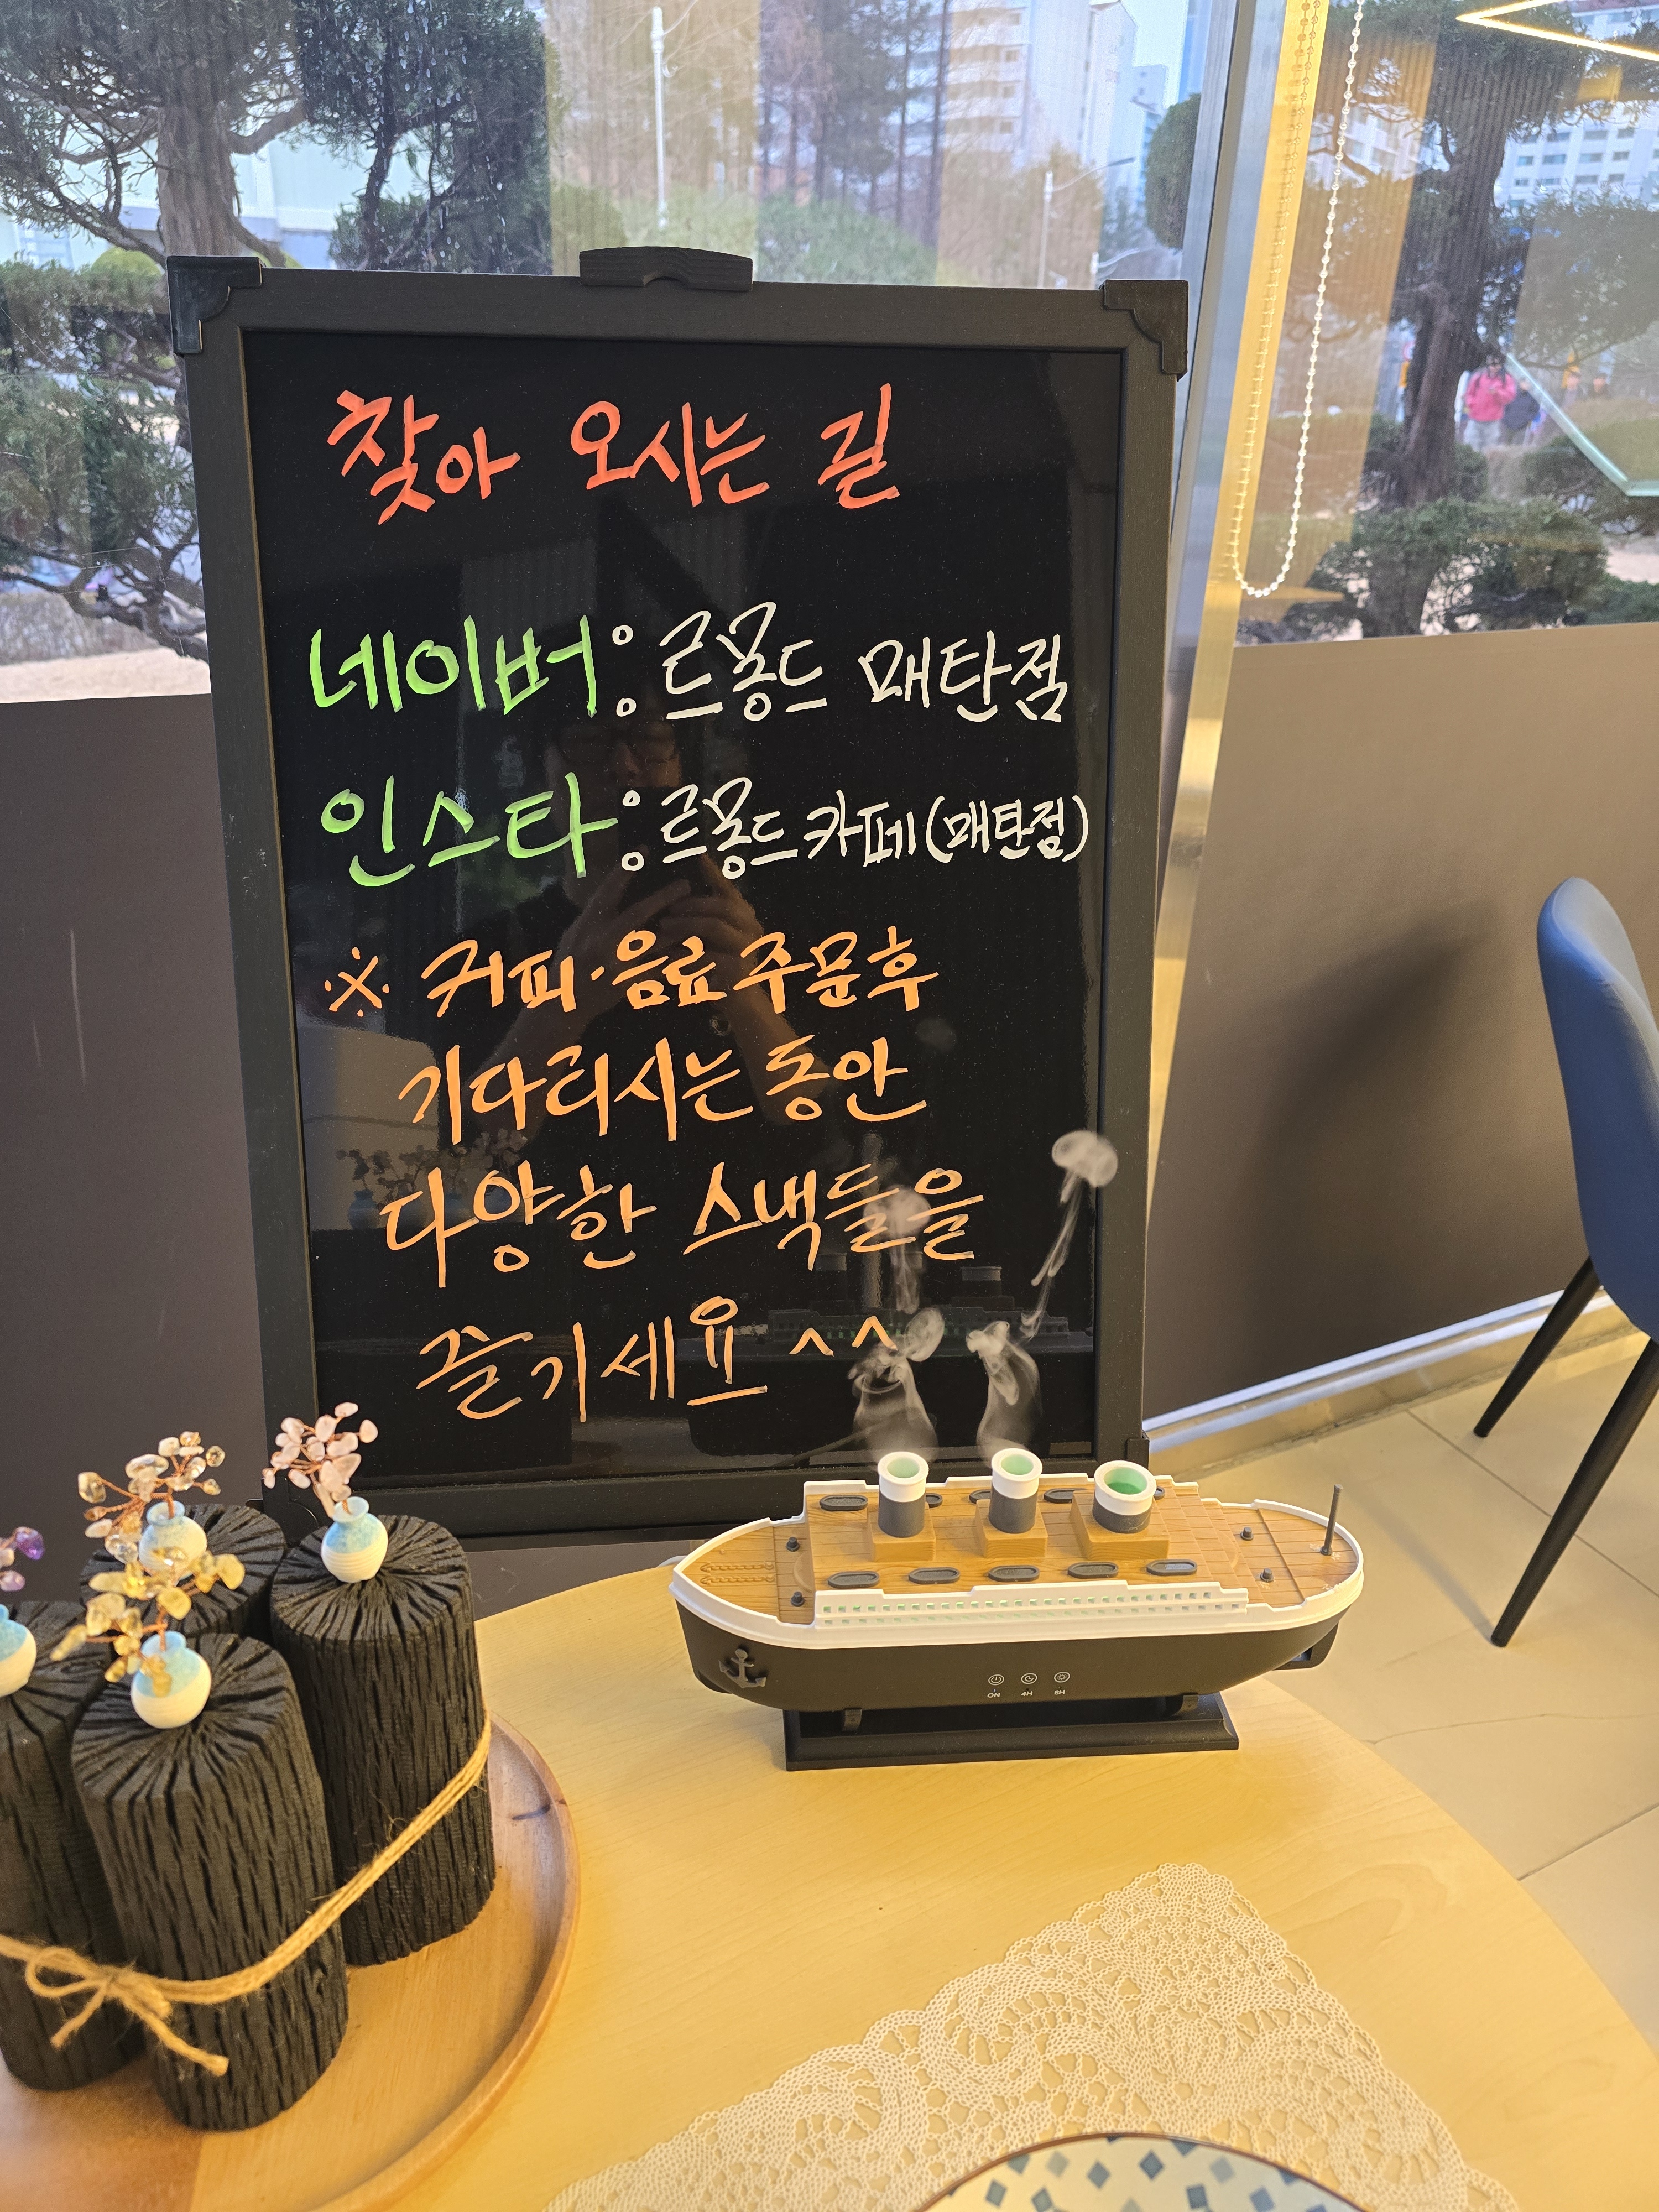 찾아 오시는 길
네이버 : 르몽드 매탄점
인스타 : 르몽드 카페 (매탄점)
※ 커피·음료 주문후
기다리시는 동안
다양한 스낵들을
즐기세요 ^^
ON 4H 8H